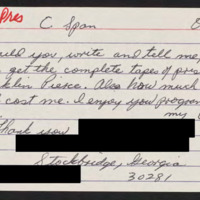 Pres
C Span
uld you, write and tell me,
get the complete tapes of pres
klin Pierce. Also how much
cost me. I enjoy your program
my
hank you
Stockbridge, Georgia
30281